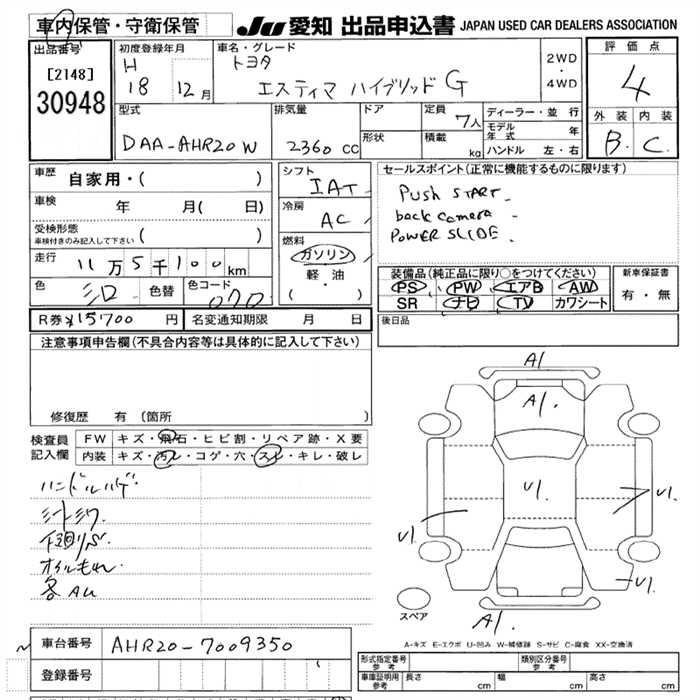 車内保管・守衛保管
JU 愛知 出品申込書 JAPAN USED CAR DEALERS ASSOCIATION
出品番号
[2148]
30948
初度登録年月
H
18 12月
車名・グレード
トヨタ
エスティマ ハイブリッド G
2WD
・
4WD
評価点
4
外装 内装
B. C.
型式
DAA-AHR20W
排気量
2360 CC
ドア
形状
定員
7人
積載
kg
ディーラー・並行
モデル年式 年
ハンドル 左・右
車歴 自家用・( )
車検 年 月( 日)
受検形態
車検付きのみ記入して下さい ( )
走行 11万5千100km
色 シロ 色替 色コード 070
シフト
IAT
冷房
AC
燃料
ガソリン
軽・油
( ・ )
セールスポイント(正常に機能するものに限ります)
Push START.
back camera
POWER SLIDE.
装備品(純正品に限り○をつけてください)
PS PW エアB AW
SR ナビ TV カワシート
新車保証書
有・無
R券 ¥15700 円 名変通知期限 月 日
後日品
注意事項申告欄(不具合内容等は具体的に記入して下さい)
修復歴 有 (箇所 )
検査員
記入欄
FW キズ・飛石・ヒビ割・リペア跡・X要
内装 キズ・汚レ・コゲ・穴・スレ・キレ・破レ
ハンドルハゲ
シートシワ
下廻りS
オイルもれ
各AU
A1
A1.
U1.
U1.
U1.
U1.
A1.
スペア
A-キズ E-エクボ U-凹み W-補修跡 S-サビ C-腐食 XX-交換済
車台番号 AHR20-7009350
登録番号
形式指定番号
参考
類別区分番号
参考
車庫証明用
参考
長さ cm 幅 cm 高さ cm